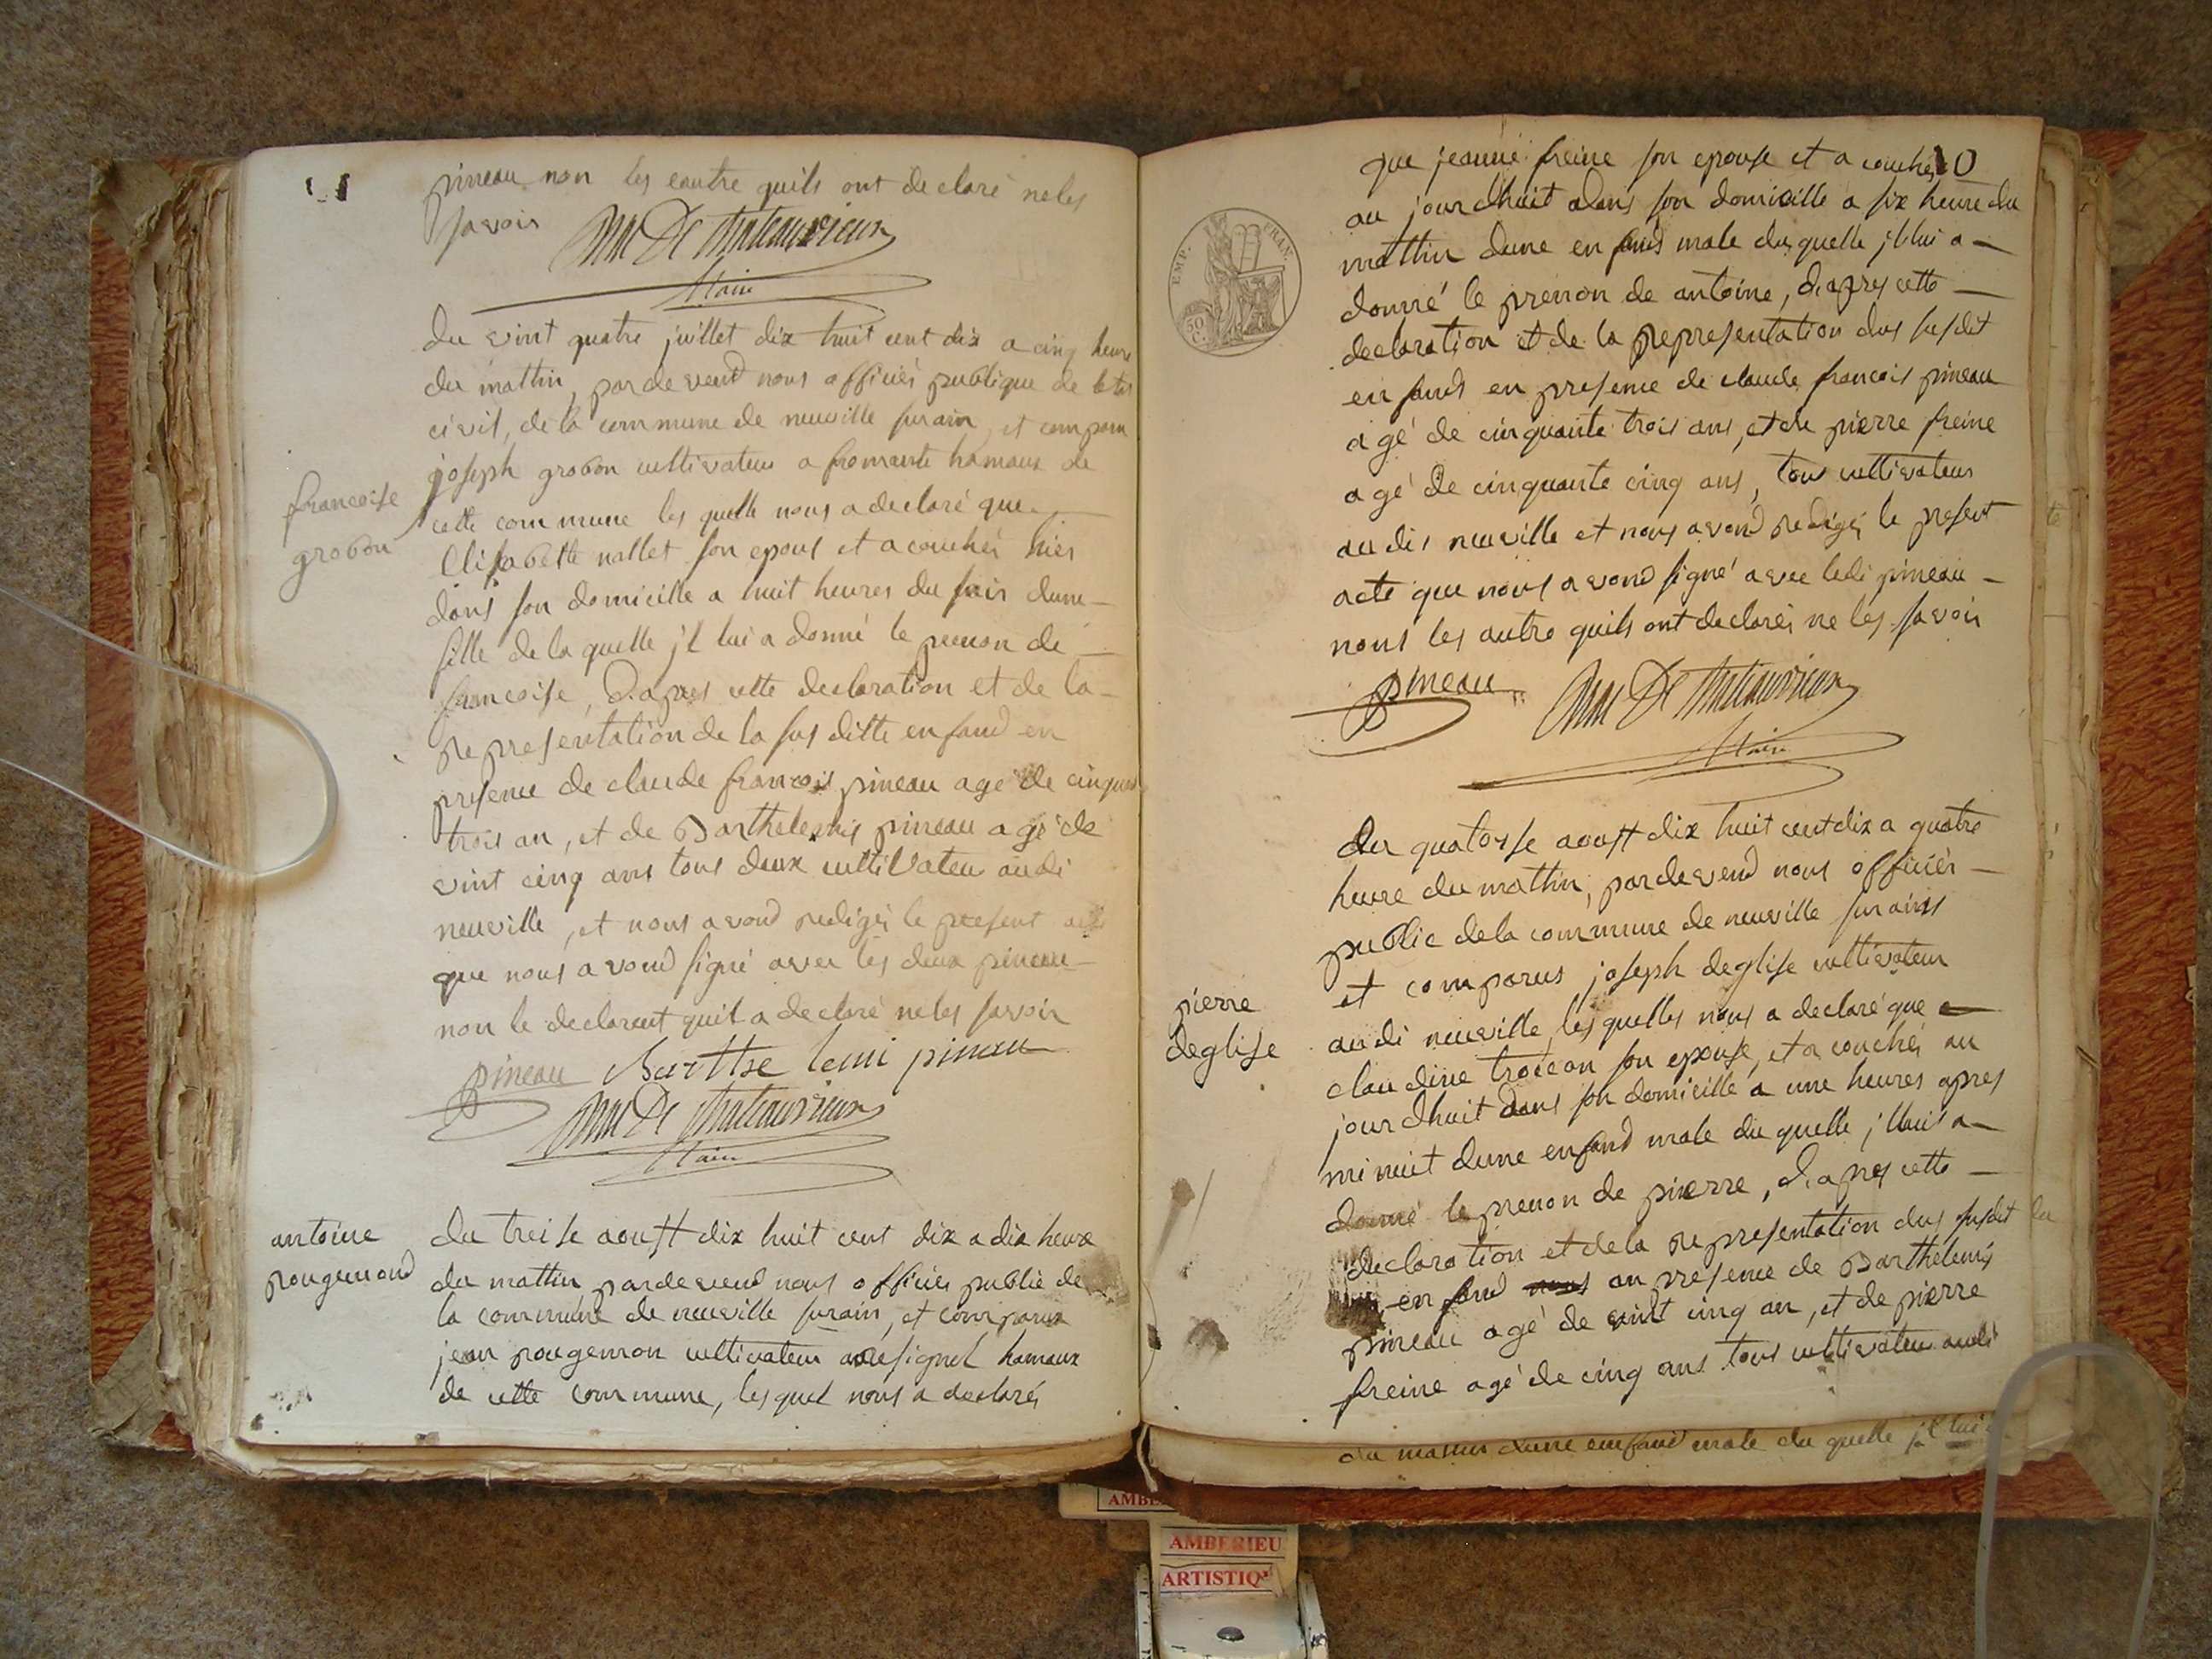 pineau non les eautre quils ont declaré neles
savoir
Maire
du vint quatre juillet dix huit cent dix a cinq heure
du mattin, pardevend nous officier publique de letat
civil, de la commune de neuville surain, et compara
joseph grobon cultivateur a fromante hamaux de
cette commune les quelle nous a declaré que
francoise
grobon
Elisabette nallet son epous et a couchés hier
dans son domicille a huit heures du soir dune
fille de la quelle jl lui a donné le prenon de
francoise, d.apres cette declaration et de la
representation de la sus ditte enfand en
presence de claude francois pineau agé de cinquante
trois an, et de Barthelemis pineau agé de
vint cinq ans tous deux cultivateu audi
neuville, et nous avond redigés le present acte
que nous avond signé avec les deux pineau
non le declarant quil a declaré neles savoir
pineau Barthe lemi pineau
Maire
antoine
rougemond
du treise aoust dix huit cent dix a dix heure
du mattin pardevend nous officiés public de
la commune de neuville surain, et comparus
jean rougemon cultivateur a resignel hamaux
de cette commune, lesquel nous a declarés
10
que jeanne freine son epouse et a couchés
au jourdhuit dans son domicille a six heure du
matthin dune enfand male du quelle jl lui a
donné le prenon de antoine, d.apres cette
declaration et de la representation dus susdit
enfand en presence de claude francois pineau
agé de cinquante trois ans, et de pierre freine
agé de cinquante cinq ans, tous cultivateur
au dis neuville et nous avond redigés le present
acte que nous avond signé avec ledi pineau
nons les autre quils ont declarés ne les savoir
pineau
Maire
EMP. FRAN.
50 C.
du quatorse aoust dix huit cent dix a quatre
heure du matthin, pardevend nous officiér
public dela commune de neuville surains
et comparus joseph deglise cultivateur
pierre
deglise
au di neuville, les quelles nous a declaré que
claudine trocon son epouse, et a couchés au
jourdhuit dans son domicille a une heures apres
minuit dune enfand male du quelle jl lui a
donné le prenon de pierre, d.apres cette
declaration et dela representation dus susdit du
enfand nous an presence de Barthelemis
pineau agé de vint cinq an, et de pierre
freine agé de cinq ans tous cultivateur audi
du mattin dune emfand male du quelle jl lui a
AMBERIEU
ARTISTIQ